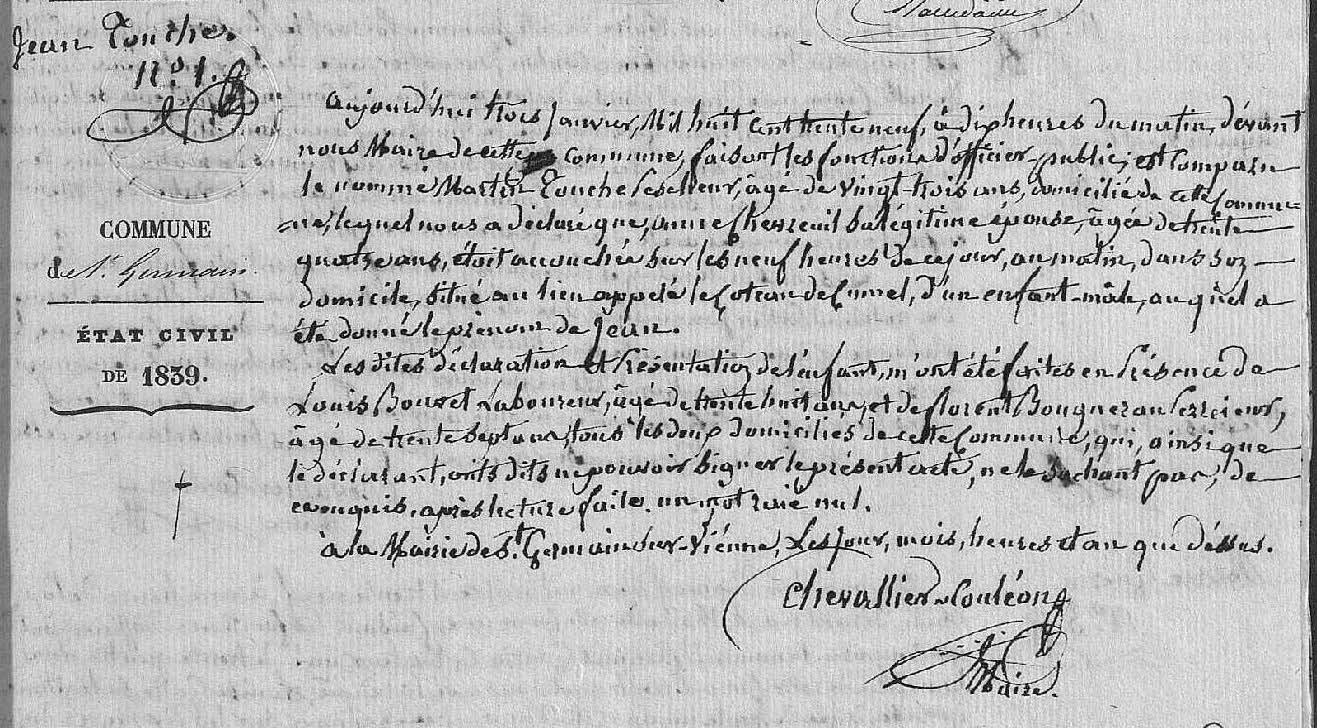 Jean Toucher
N.º 1.
COMMUNE
de St. Germain
ÉTAT CIVIL
DE 1839.
Aujourd'hui trois Janvier, Mil huit Cent trente neuf, à dix heures du matin, dévant
nous Maire de cette Commune, faisant les fonctions d'officier-public, est Comparu
le nommé Martin Touche âgé de vingt-trois ans, domicilié de cette Commu=
=ne, lequel nous a déclaré que, anne Chevreuil sa légitime épouse, âgée de trente
quatre ans, étoit accouchée sur les neuf heures de ce jour, au matin, dans son
domicile, situé au lieu appelé le Coteau de d'un enfant-mâle, au quel a
été donné le prénom de Jean.
Les dites déclaration et Présentation de l'enfant, m'ont été faites en Présence de
Louis Bouret Laboureur, âgé de trente huit ans, et de florent Bouguereau
âgé de trente sept ans, tous les deux domiciliés de cette Commune, qui, ainsi que
le déclarant, onts dits ne pouvoir signer le présent acte, ne le sachant pas, de
ce enquis, après lecture faite. un mot raié nul.
à la Mairie de St. Germain sur-Viénne, Les Jour, mois, heures et an que déssus.
Chevallier Couléon
Maire.